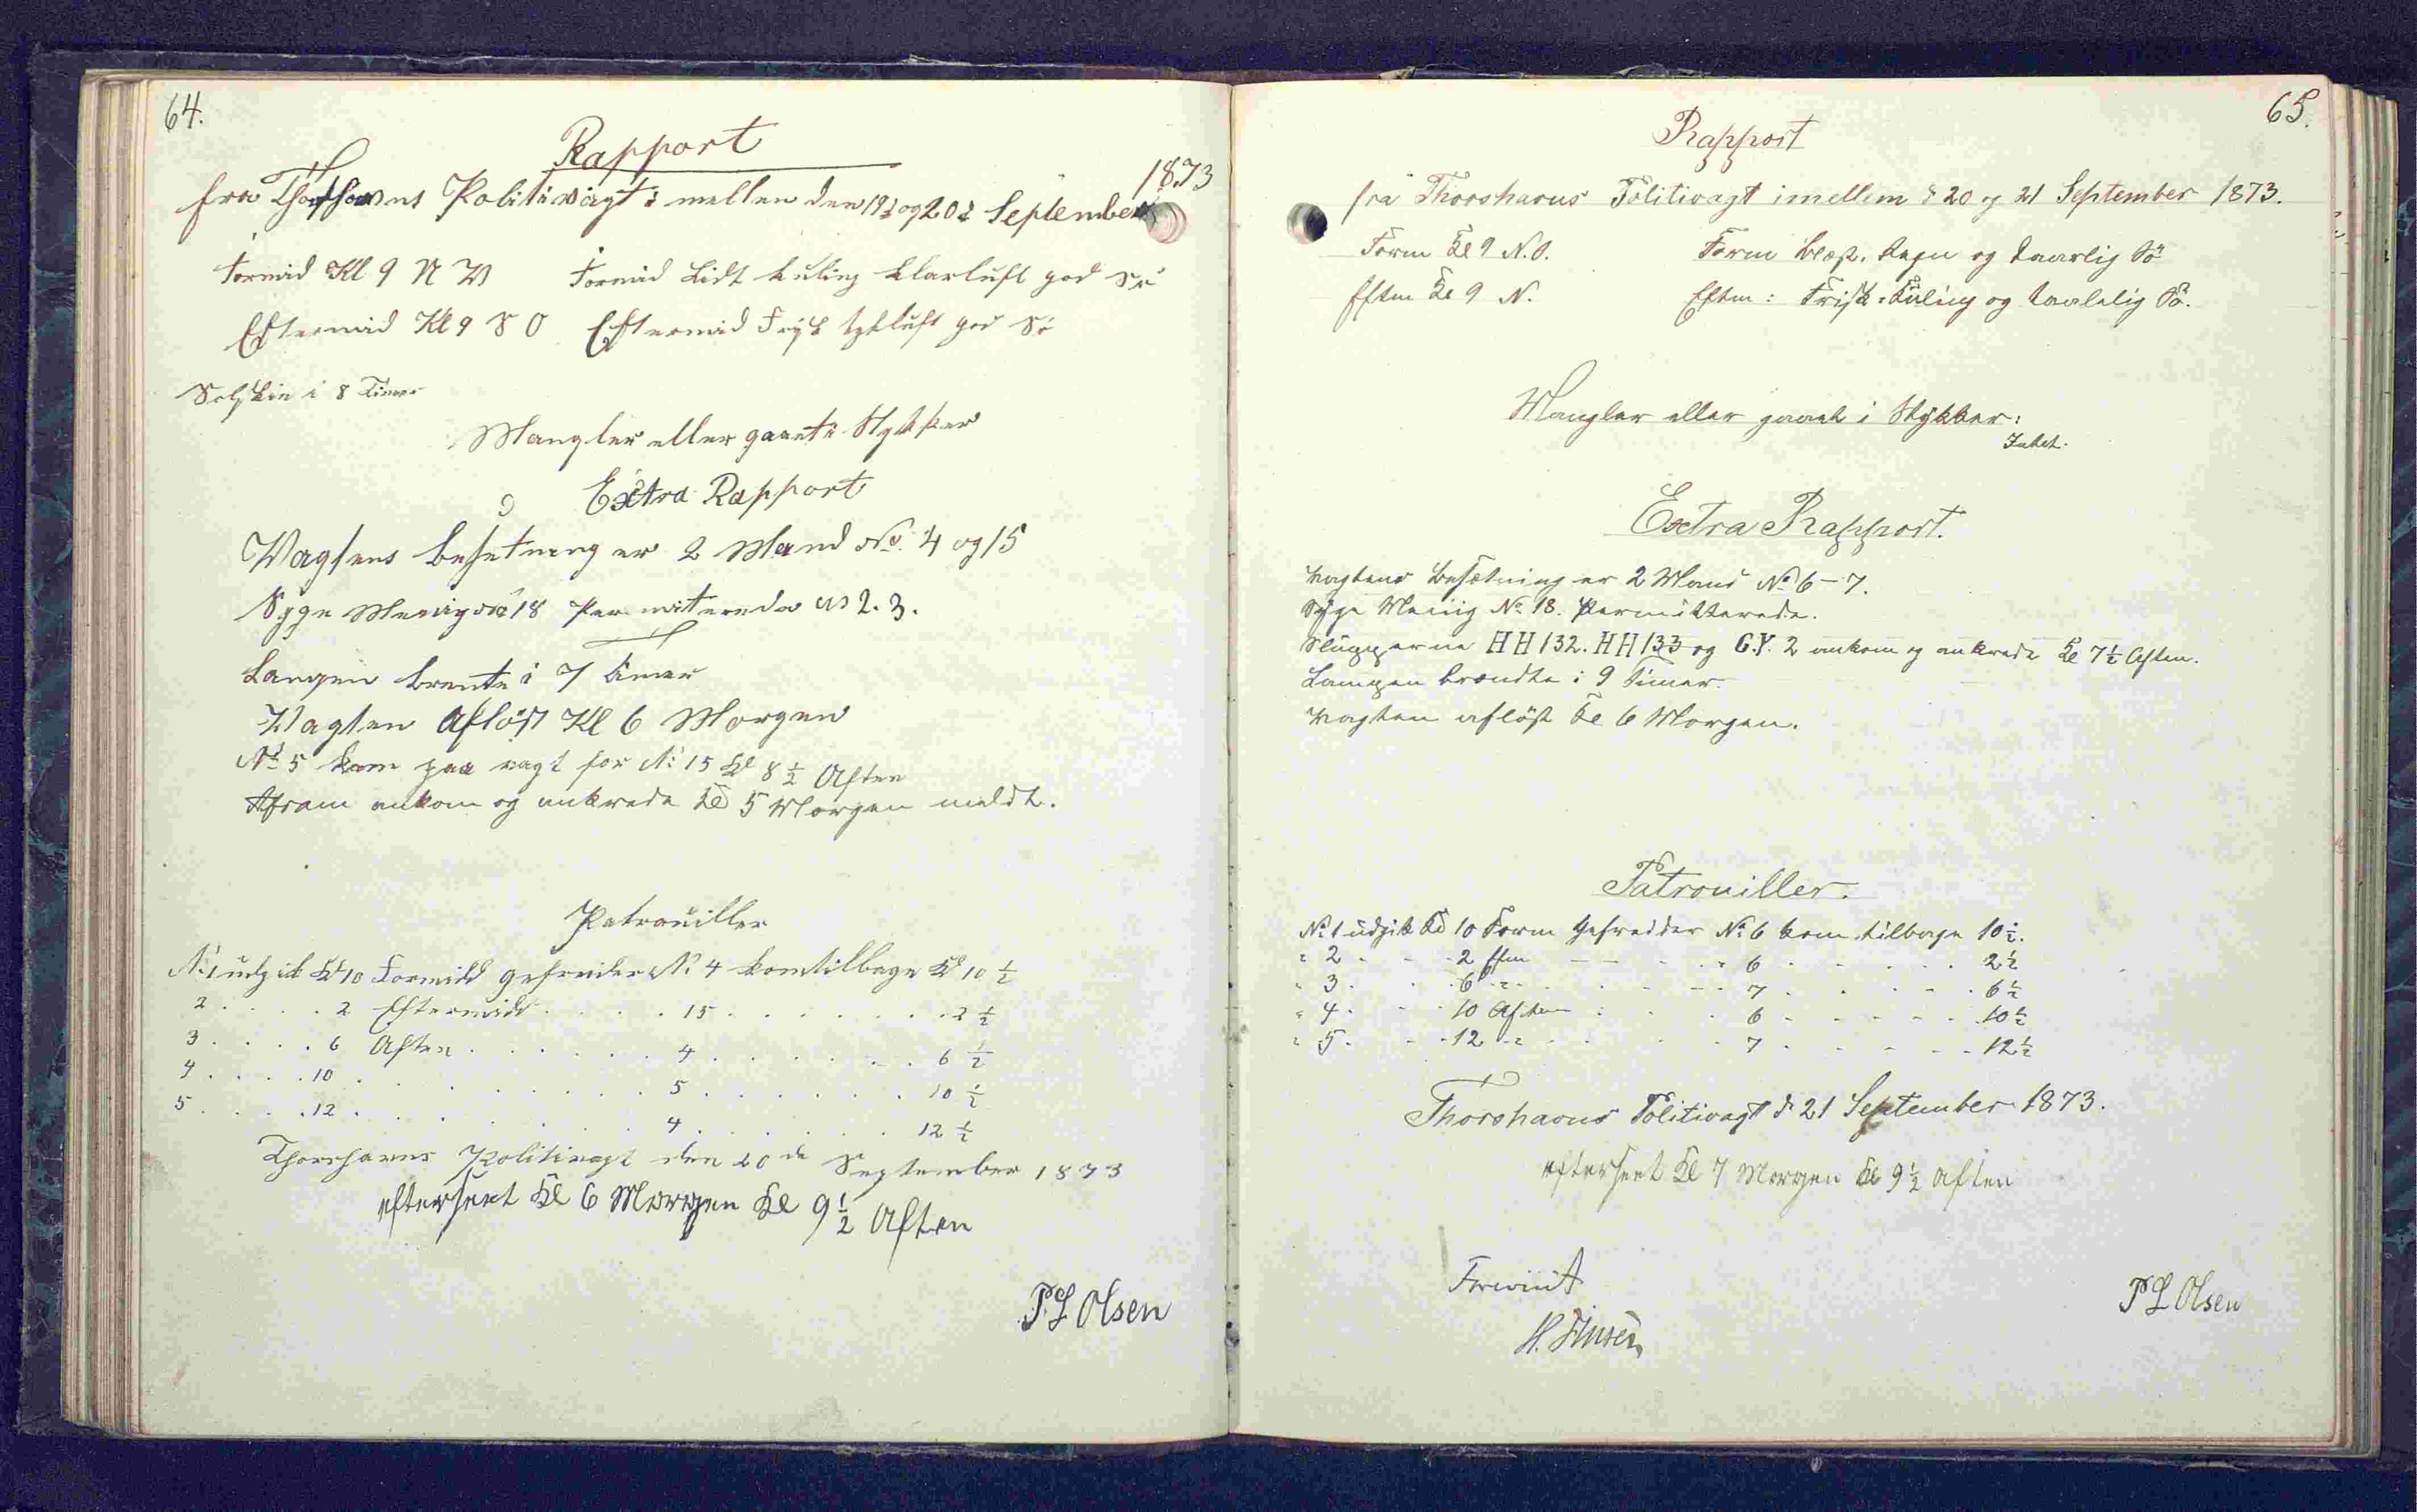 64.
Rapport
fra Thorshavns Politivagt i mellen den 19 og 20 September 1873
Formid Kl 9 N W Formid Lidt kuling klarluft god Sö
Eftermid Kl 9 S O Eftermid Frisk tykluft god Sö
Solskin i 8 Timer
Mangler eller gaaet i Stykker
Extra Rapport
Wagtens besetning er 2 Mand No. 4 og 15
Syge Menig No 18 Permiterede No 2. 3.
Lampen brente i 7 Timer
Wagten Aflöst Kl 6 Morgen
No 5 kom paa vagt for No 15 Kl 8 1/2 Aften
Fram ankom og ankrede Kl 5 Morgen meldt.
Patrouiller
No 1 udgik Kl 10 Formidd gefreider No 4 kom tilbage Kl 10 1/2
2 . . . . 2 Eftermidd . . . . 15 . . . . . . . 2 1/2
3 . . . . 6 Aften . . . . . 4 . . . . . . 6 1/2
4 . . . . 10 . . . . . . . . 5 . . . . . . 10 1/2
5 . . . . 12 . . . . . . . 4 . . . . . . 12 1/2
Thorshavns Politivagt den 20de September 1873
efterseet Kl 6 Morgen Kl 9 1/2 Aften
P L Olsen
65.
Rapport
fra Thorshavns Politivagt imellem d 20 og 21 September 1873.
Form Kl 9 N.O. Form blæs. Regn og daarlig Sö
Eftm Kl 9 N. Eftm: Frisk-Kuling og taalelig Sö.
Mangler eller gaaet i Stykker:
Intet.
Extra Rapport.
Vagtens besætning er 2 Mand No 6 - 7.
Syge Menig No 18. Permitterede.
Slupperne HH 132. HH 133 og G.V. 2 ankom og ankrede Kl 7 1/2 Aften.
Lampen brændte i 9 Timer.
Vagten aflöst Kl 6 Morgen.
Patrouiller.
No 1 udgik Kl 10 Form Gefreider No 6 kom tilbage 10 1/2.
" 2 . . . 2 Eftm - - . " 6 . . . . . 2 1/2
" 3 . . . 6 " . . . - - 7 . . . . . 6 1/2
" 4 . . . 10 Aften . . . 6 . . . . . 10 1/2
" 5 . . . 12 " . . . . 7 . . . . . 12 1/2
Thorshavns Politivagt d. 21 September 1873.
efterseet Kl 7 Morgen Kl 9 1/2 Aften
Foreviist
H. Finsen
P L Olsen